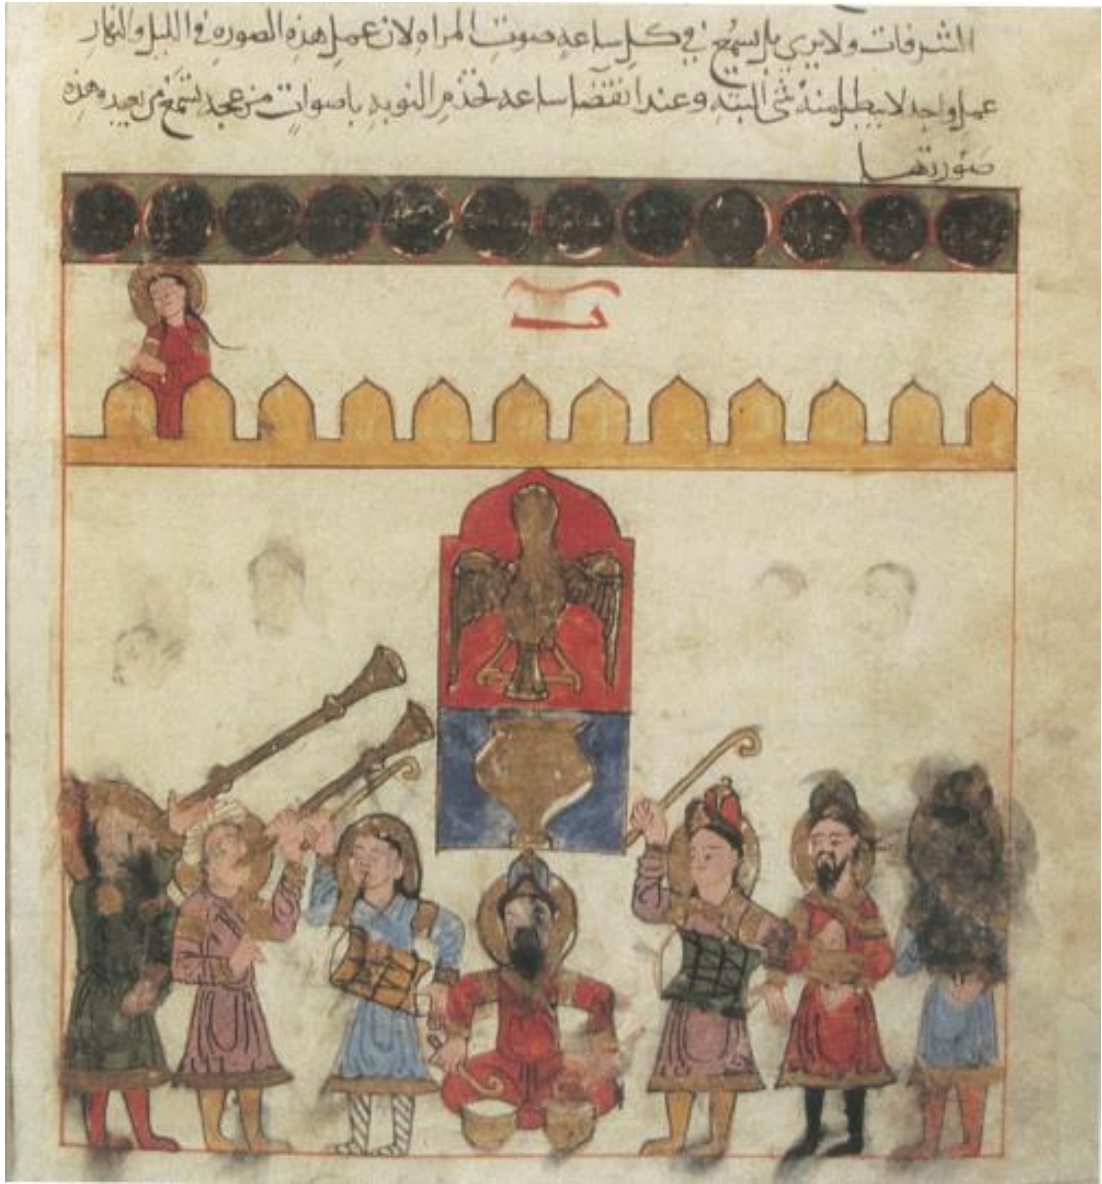 الشرفات ولا يري بل يسمع في كل ساعه صوت المراه لان عمل هذه الصوره في الليل والنهار
عمل واحد لا يبطل منه شي البته وعند انقضا ساعه تخدم النوبه باصوات من عجد تسمع من بعيد وهذه
صورتها